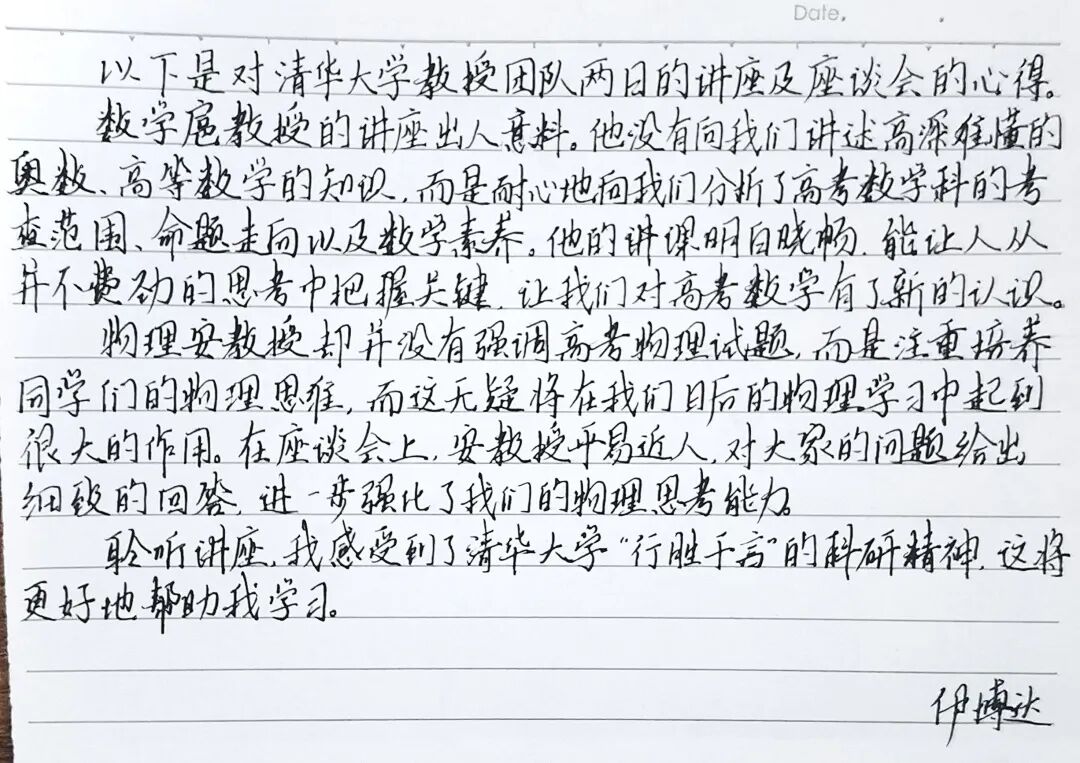 Date.
以下是对清华大学教授团队两日的讲座及座谈会的心得。
数学扈教授的讲座出人意料。他没有向我们讲述高深难懂的
奥数、高等数学的知识,而是耐心地向我们分析了高考数学科的考
查范围、命题走向以及数学素养。他的讲课明白晓畅,能让人从
并不费劲的思考中把握关键,让我们对高考数学有了新的认识。
物理安教授却并没有强调高考物理试题,而是注重培养
同学们的物理思维,而这无疑将在我们日后的物理学习中起到
很大的作用。在座谈会上,安教授平易近人,对大家的问题给出
细致的回答,进一步强化了我们的物理思考能力。
聆听讲座,我感受到了清华大学“行胜于言”的科研精神,这将
更好地帮助我学习。
伊博达